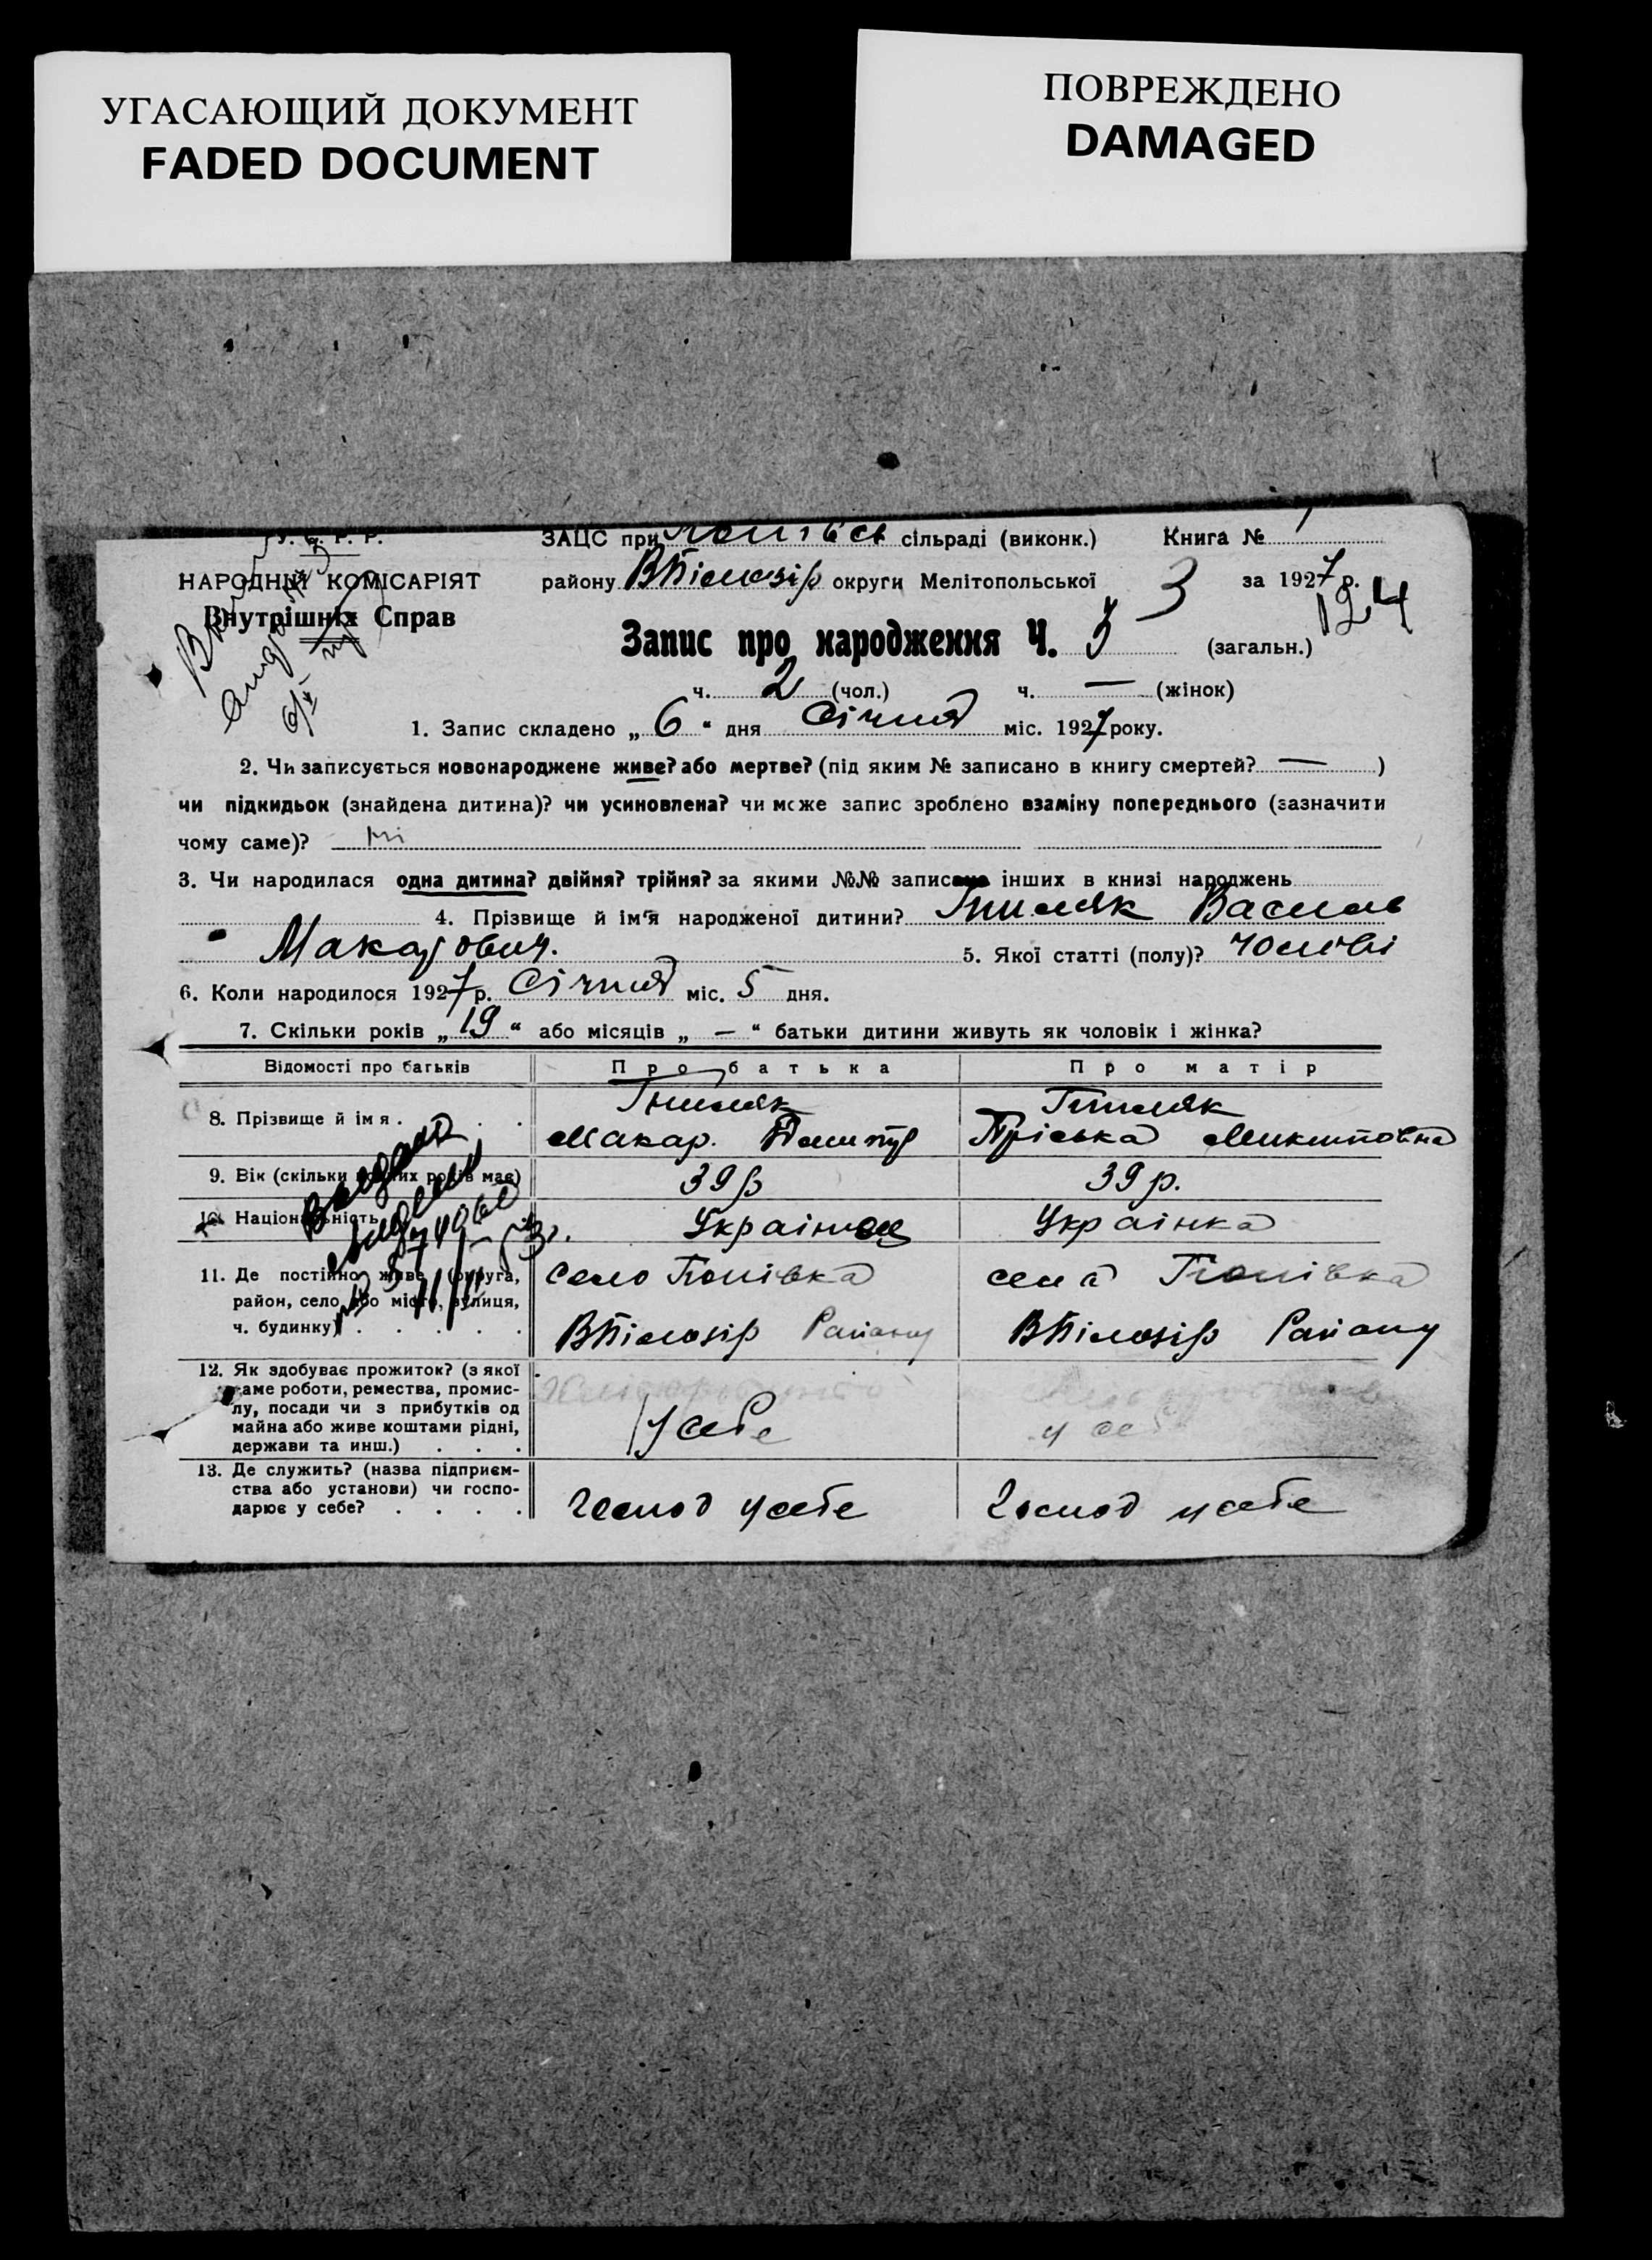 УГАСАЮЩИЙ ДОКУМЕНТ
FADED DOCUMENT
ПОВРЕЖДЕНО
DAMAGED
У. С. Р. Р.
НАРОДНІЙ КОМІСАРІЯТ
Внутрішніх Справ
ЗАЦС при сільраді (виконк.) Книга № 1
району ВБілозір округи Мелітопольської 3 за 1927 р.
124
Запис про народження Ч. 3 (загальн.)
ч. 2 (чол.) ч. — (жінок)
1. Запис складено „ 6 “ дня Січня міс. 1927 року.
2. Чи записується новонароджене живе? або мертве? (під яким № записано в книгу смертей? — )
чи підкидьок (знайдена дитина)? чи усиновлена? чи може запис зроблено взаміну попереднього (зазначити
чому саме)? ні
3. Чи народилася одна дитина? двійня? трійня? за якими №№ записано інших в книзі народжень
4. Прізвище й ім'я народженої дитини? Гниляк Василь
Макарович. 5. Якої статті (полу)? чоловічі
6. Коли народилося 1927 р. Січня міс. 5 дня.
7. Скільки років „ 19 “ або місяців „ — “ батьки дитини живуть як чоловік і жінка?
Відомості про батьків Про батька Про матір
8. Прізвище й імя . . . Гниляк Гниляк
Макар. Пріська Микитовна
9. Вік (скільки повних років має) 39 р 39 р.
10. Національність Українец Українка
11. Де постійно живе (округа, село Попівка села Попівка
район, село або місто, вулиця,
ч. будинку) . . . . . ВБілозір Району ВБілозір Району
12. Як здобуває прожиток? (з якої
саме роботи, ремества, промис-
лу, посади чи з прибутків од у себе у себе
майна або живе коштами рідні,
держави та инш.) . . .
13. Де служить? (назва підприєм-
ства або установи) чи госпо- Господ у себе Господ у себе
дарює у себе? . . . .